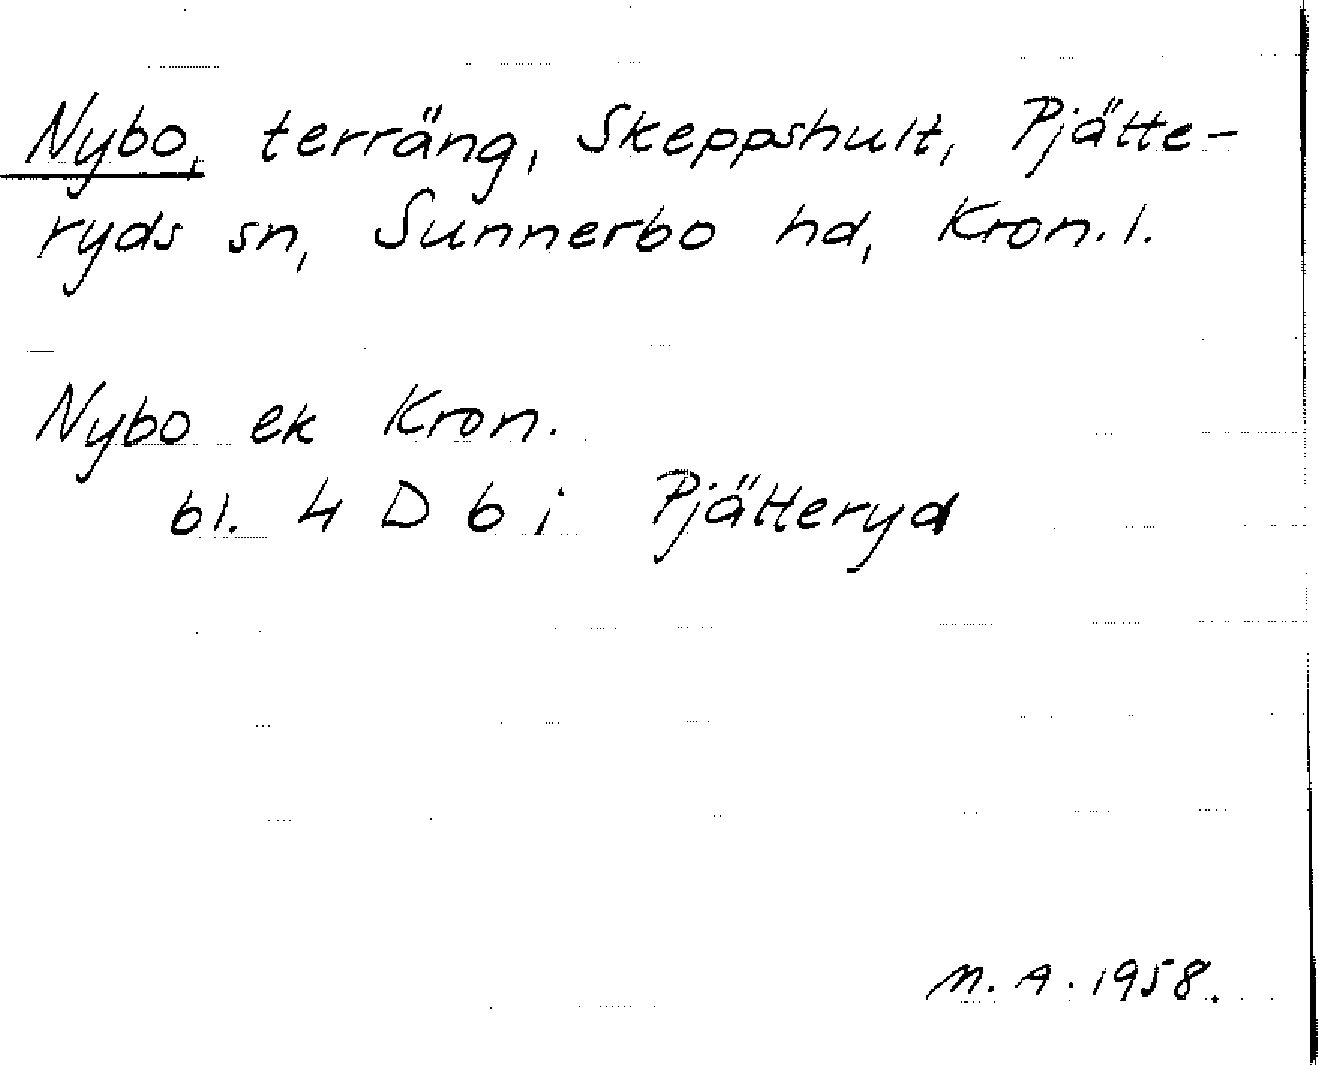 Nybo, terräng, Skeppshult, Pjätte-
ryds sn, Sunnerbo hd, Kron. l.
Nybo ek Kron.
bl. 4 D b i Pjätteryd
M. A. 1958.